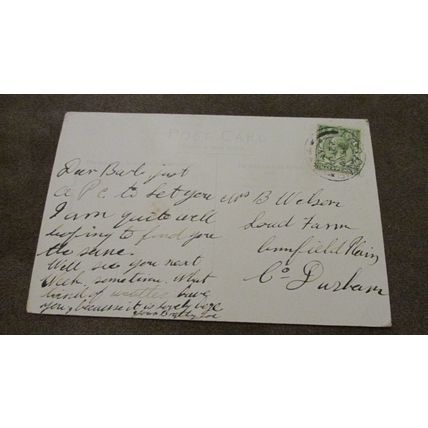 POST CARD
Dear Burt just
a P.C. to let you
I am quite well
hoping to find you
the same.
Well, see you next
week, sometime. What
kind of weather have
you, because it is lovely here
Your
Mrs B Welson
Loud Farm
Annfield Plain
Co Durham